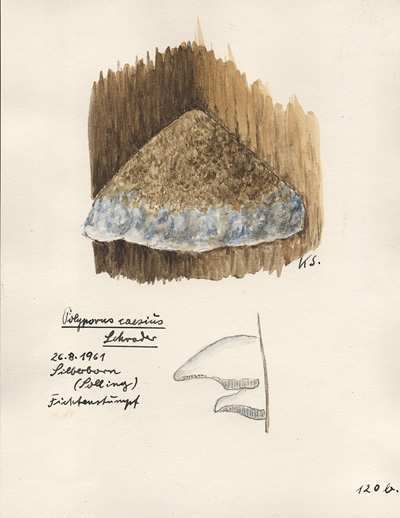 K S.
Polyporus caesius
Schrader
26.8.1961
Silberborn
(Solling)
Fichtenstumpf
120b.